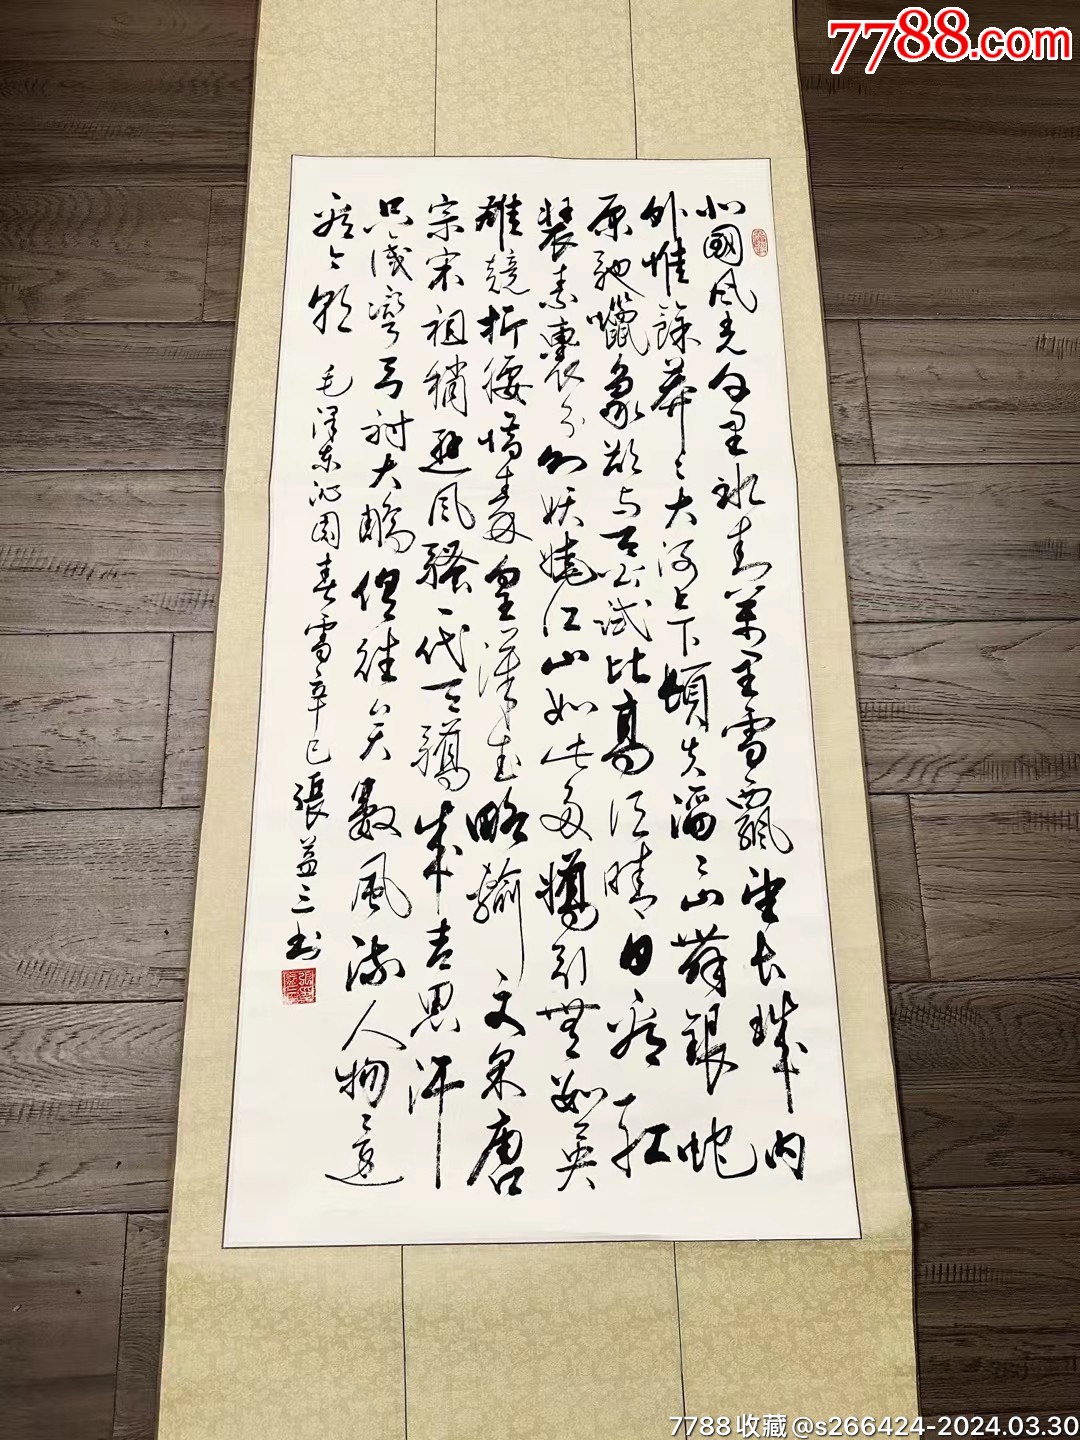 北國風光千里冰封萬里雪飄望長城内
外惟餘莽々大河上下頓失滔々山舞銀蛇
原馳蠟象欲與天公試比高須晴日看紅
裝素裹分外妖嬈江山如此多嬌引無數英
雄競折腰惜秦皇漢武略輸文采唐
宗宋祖稍遜風騷一代天驕成吉思汗
只識彎弓射大鵰俱往矣數風流人物還
看今朝 毛澤東沁園春雪辛巳張益三書
7788.com
7788收藏@s266424-2024.03.30